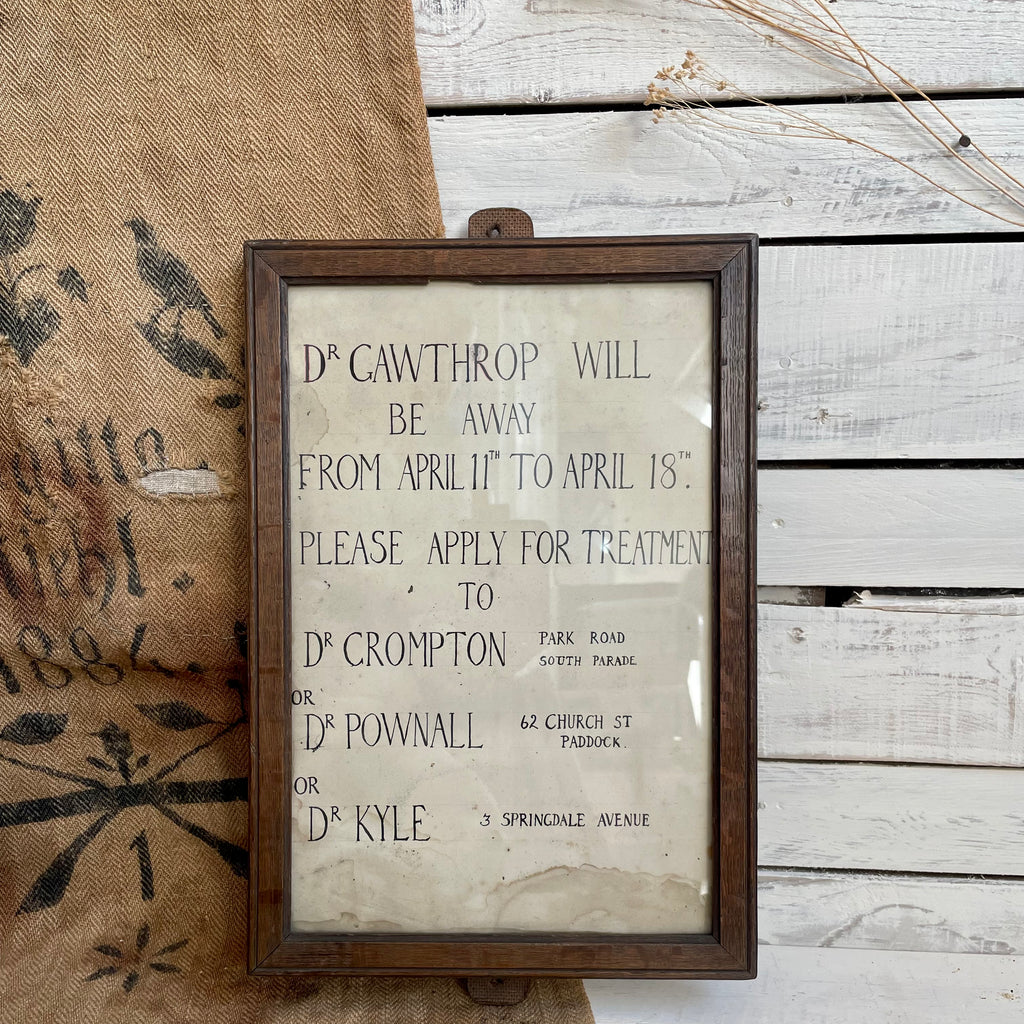 DR GAWTHROP WILL
BE AWAY
FROM APRIL 11TH TO APRIL 18TH.
PLEASE APPLY FOR TREATMENT
TO
DR CROMPTON PARK ROAD
SOUTH PARADE
OR
DR POWNALL 62 CHURCH ST
PADDOCK.
OR
DR KYLE 3 SPRINGDALE AVENUE
1884.
1